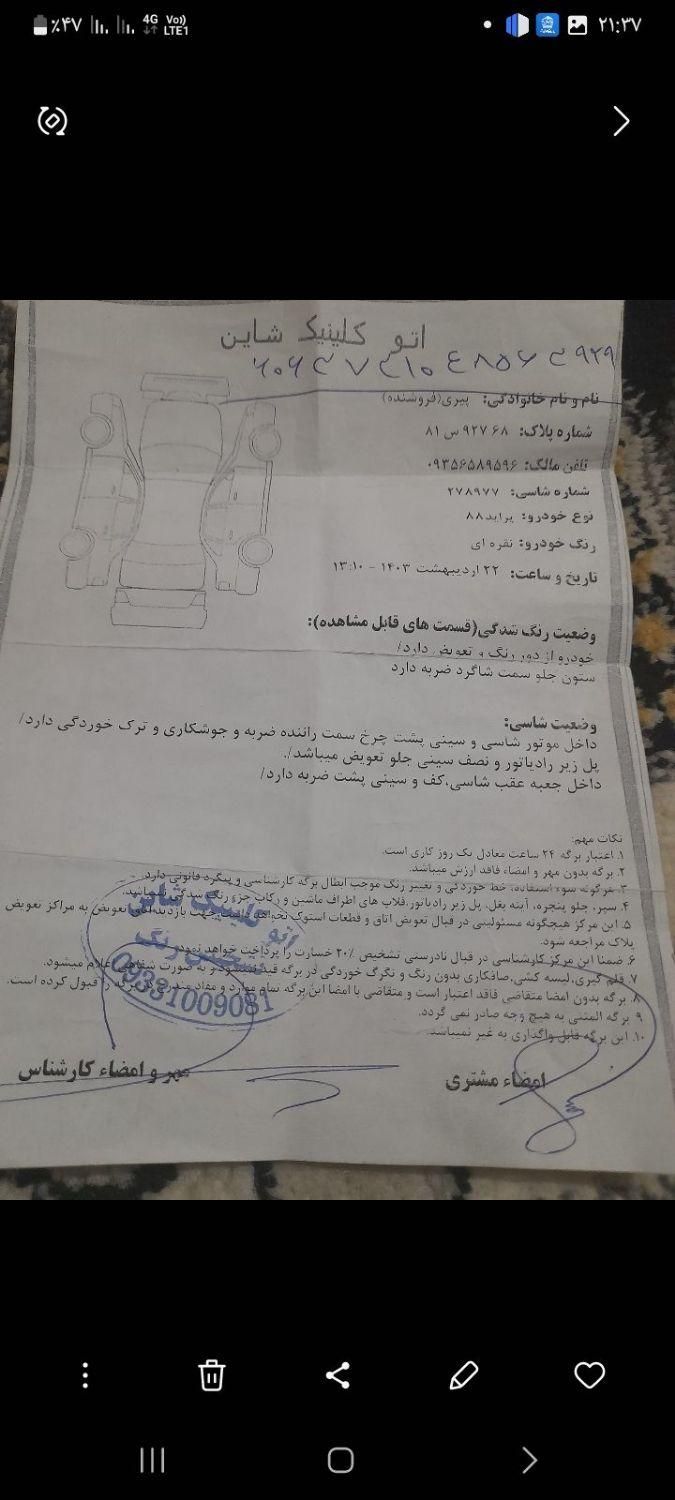 ٪۴۷ 4G Vo)) LTE1 ۲۱:۳۷
اتو کلینیک شاین
نام و نام خانوادگی: پیری(فروشنده)
شماره پلاک: ۶۸ ۹۲۷ س ۸۱
تلفن مالک: ۰۹۳۵۶۵۸۹۵۹۶
شماره شاسی: ۲۷۸۹۷۷
نوع خودرو: پراید۸۸
رنگ خودرو: نقره ای
تاریخ و ساعت: ۲۲ اردیبهشت ۱۴۰۳ - ۱۳:۱۰
وضعیت رنگ شدگی(قسمت های قابل مشاهده):
خودرو از دور رنگ و تعویض دارد/
ستون جلو سمت شاگرد ضربه دارد
وضعیت شاسی:
داخل موتور شاسی و سینی پشت چرخ سمت راننده ضربه و جوشکاری و ترک خوردگی دارد/
پل زیر رادیاتور و نصف سینی جلو تعویض میباشد/.
داخل جعبه عقب شاسی،کف و سینی پشت ضربه دارد/
نکات مهم:
۱. اعتبار برگه ۲۴ ساعت معادل یک روز کاری است.
۲. برگه بدون مهر و امضاء فاقد ارزش میباشد.
۳. هرگونه سوء استفاده، خط خوردگی و تغییر رنگ موجب ابطال برگه کارشناسی و پیگرد قانونی دارد.
۴. سپر، جلو پنجره، آینه بغل، پل زیر رادیاتور،قلاب های اطراف ماشین و رکاب جزء رنگ شدگی نمیباشد.
۵. این مرکز هیچگونه مسئولیتی در قبال تعویض اتاق و قطعات استوک نخواهد داشت جهت بازدید اتاق تعویض به مراکز تعویض
پلاک مراجعه شود.
۶. ضمنا این مرکز کارشناسی در قبال نادرستی تشخیص ۲۰٪ خسارت را پرداخت خواهد نمود.
۷. قلم گیری،لیسه کشی،صافکاری بدون رنگ و نگرگ خوردگی در برگه قید نمیشود و به صورت شفاهی اعلام میشود.
۸. برگه بدون امضا متقاضی فاقد اعتبار است و متقاضی با امضا این برگه تمام موارد و مفاد مندرج در برگه را قبول کرده است.
۹. برگه المثنی به هیچ وجه صادر نمی گردد.
۱۰. این برگه قابل واگذاری به غیر نمیباشد.
اتو کلینیک شاین
تشخیص رنگ
09331009081
امضاء مشتری
مهر و امضاء کارشناس